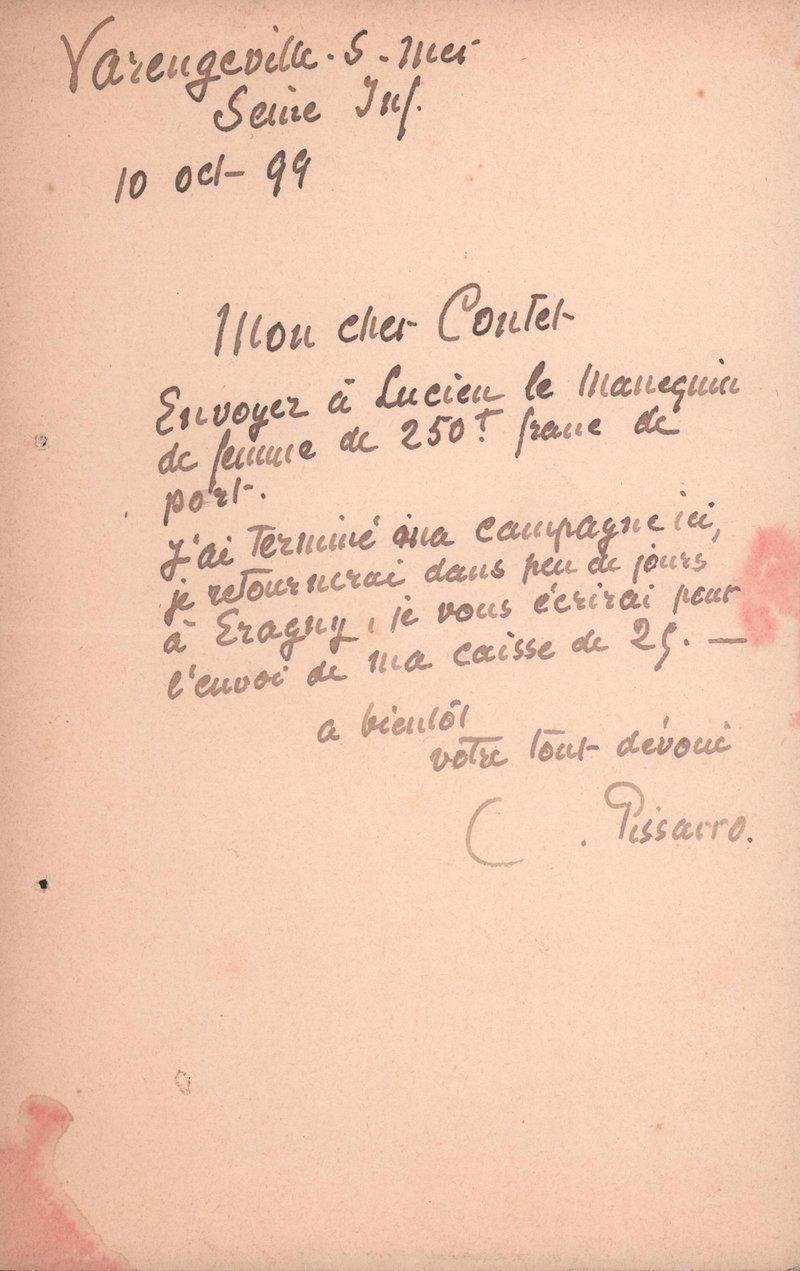 Varengeville-S-Mer
Seine Inf.
10 oct- 99
Mon cher Contet
Envoyez à Lucien le Manequin
de femme de 250f franc de
port.
J'ai terminé ma campagne ici,
je retournerai dans peu de jours
à Eragny, je vous écrirai pour
l'envoi de ma caisse de 25. —
a bientôt
votre tout dévoué
C. Pissarro.